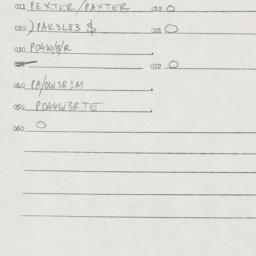 011 PEXTER/PAXTER 012 O
020 )PAK3L83 $ 021 O
030 PO4W/3/R
032 O
040 PA/OW3R2M
050 PO44W3RTE
060 O